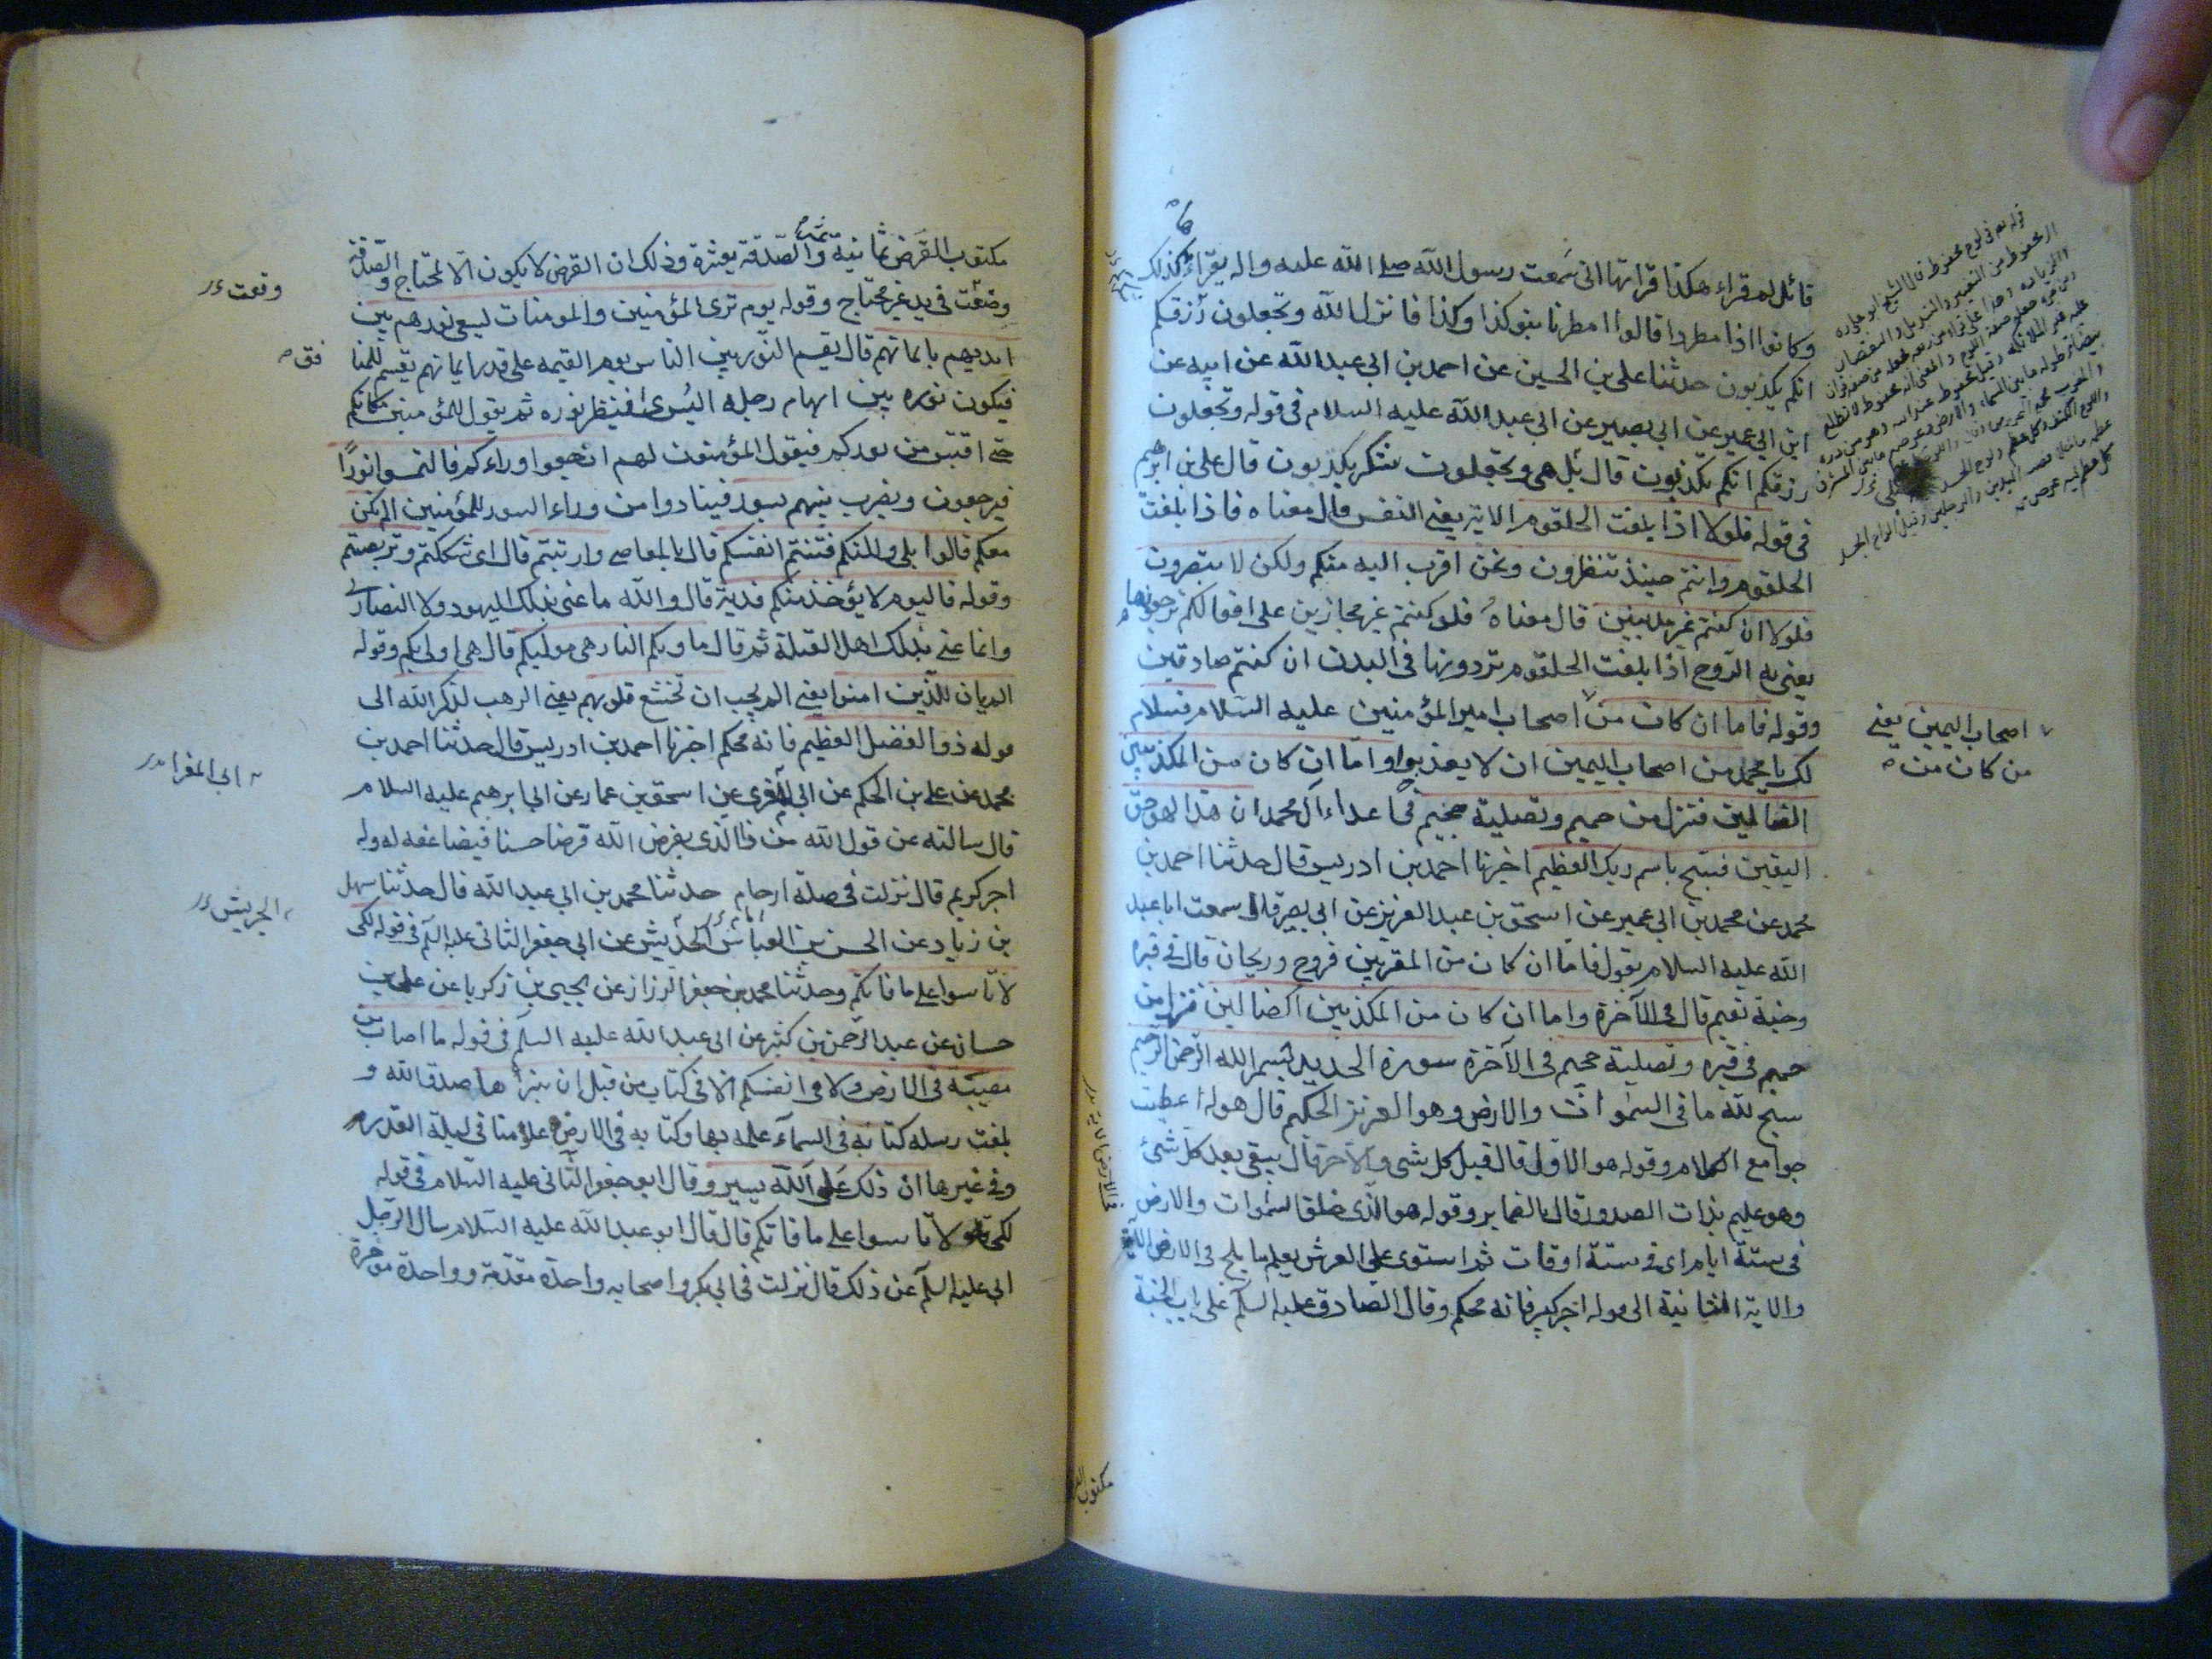 قائل لم قراء هكذا قراتها انى سمعت رسول الله صلى الله عليه واله يقراء كذلك
وكانوا اذا مطروا قالوا امطرنا بنو كذا وكذا فانزل الله وتجعلون رزقكم
انكم تكذبون حدثنا على بن الحسين عن احمد بن ابى عبد الله عن ابيه عن
ابن ابى عمير عن ابى بصير عن ابى عبد الله عليه السلام فى قوله وتجعلون
رزقكم انكم تكذبون قال بل هى وتجعلون شكركم تكذبون قال على بن ابرهيم
فى قوله فلولا اذا بلغت الحلقوم الاية يعنى النفس قال معناه فاذا بلغت
الحلقوم وانتم حينئذ تنظرون ونحن اقرب اليه منكم ولكن لا تبصرون
فلولا ان كنتم غير مدينين قال معناه فلو كنتم غير مجازين على افعالكم ترجعونها
يعنى به الروح اذا بلغت الحلقوم تردونها فى البدن ان كنتم صادقين
وقوله فاما ان كان من اصحاب امير المؤمنين عليه السلام فسلام
اصحاب اليمين يعنى
من كان من
لك يا محمد من اصحاب اليمين ان لا يعذبوا واما ان كان من المكذبين
الضالين فنزل من حميم وتصلية جحيم فى اعداء آل محمد ان هذا لهو حق
اليقين فسبح باسم ربك العظيم اخبرنا احمد بن ادريس قال حدثنا احمد بن
محمد عن محمد بن ابى عمير عن اسحق بن عبد العزيز عن ابى بصير قال سمعت ابا عبد
الله عليه السلام يقول فاما ان كان من المقربين فروح وريحان قال فى قبره
وجنة نعيم قال فى الآخرة واما ان كان من المكذبين الضالين فنزل من
حميم فى قبره وتصلية جحيم فى الآخرة سورة الحديد بسم الله الرحمن الرحيم
سبح لله ما فى السموات والارض وهو العزيز الحكيم قال هو له اعطيت
جوامع الكلام وقوله هو الاول قال قبل كل شى والآخر قال يبقى بعد كل شئ
وهو عليم بذات الصدور قال بالضماير وقوله هو الذى خلق السموات والارض
فى ستة ايام اى فى ستة اوقات ثم استوى على العرش يعلم ما يلج فى الارض الاية
والاية الثانية الى قوله اجر كبير فانه محكم وقال الصادق عليه السلم على باب الجنة
مكتوب القرض
مكتوب القرض بثمانية عشر والصدقة بعشرة وذلك ان القرض لا يكون الا لمحتاج والصدقة
وضعت فى يد غير محتاج وقوله يوم ترى المؤمنين والمومنات يسعى نورهم بين
وقعت
ايديهم بايمانهم قال يقسم النور بين الناس يوم القيمة على قدر ايمانهم يقسم للمنافق
فيكون نوره بين ابهام رجله اليسرى فينظر نوره ثم يقول للمؤمنين مكانكم
حتى اقتبس من نوركم فيقول المؤمنون لهم ارجعوا وراءكم فالتمسوا نورا
فيرجعون ويضرب بينهم بسور فينادوا من وراء السور للمؤمنين الم نكن
معكم قالوا بلى ولكنكم فتنتم انفسكم قال بالمعاصى وارتبتم قال اى شككتم وتربصتم
وقوله فاليوم لا يؤخذ منكم فدية قال والله ما عنى بذلك اليهود ولا النصارى
وانما عنى بذلك اهل القبلة ثم قال ماويكم النار هى موليكم قال هى اولى بكم وقوله
الم يان للذين امنوا يعنى الم يجب ان تخشع قلوبهم يعنى الرهب لذكر الله الى
قوله ذو الفضل العظيم فانه محكم اخبرنا احمد بن ادريس قال حدثنا احمد بن
محمد عن على بن الحكم عن ابى المغرى عن اسحق بن عمار عن ابى ابرهيم عليه السلام
ابى المغرا
قال سالته عن قول الله من ذا الذى يقرض الله قرضا حسنا فيضاعفه له وله
اجر كريم قال نزلت فى صلة ارحام حدثنا محمد بن ابى عبد الله قال حدثنا سهل
بن زياد عن الحسن بن العباس الحريش عن ابى جعفر الثانى عليه السلم فى قوله لكى
الحريش
لا تاسوا على ما فاتكم وحدثنا محمد بن جعفر الرزاز عن يحيى بن زكريا عن على بن
حسان عن عبد الرحمن بن كثير عن ابى عبد الله عليه السلم فى قوله ما اصاب من
مصيبة فى الارض ولا فى انفسكم الا فى كتاب من قبل ان نبراها صدق الله و
بلغت رسله كتابه فى السماء علمه بها وكتابه فى الارض علومنا فى ليلة القدر
وفى غيرها ان ذلك على الله يسير وقال ابو جعفر الثانى عليه السلام فى قوله
لكى لا تاسوا على ما فاتكم قال قال ابو عبد الله عليه السلام سال الرجل
ابى عليه السلم عن ذلك قال نزلت فى ابى بكر واصحابه واحدة مقدمة وواحدة موخرة